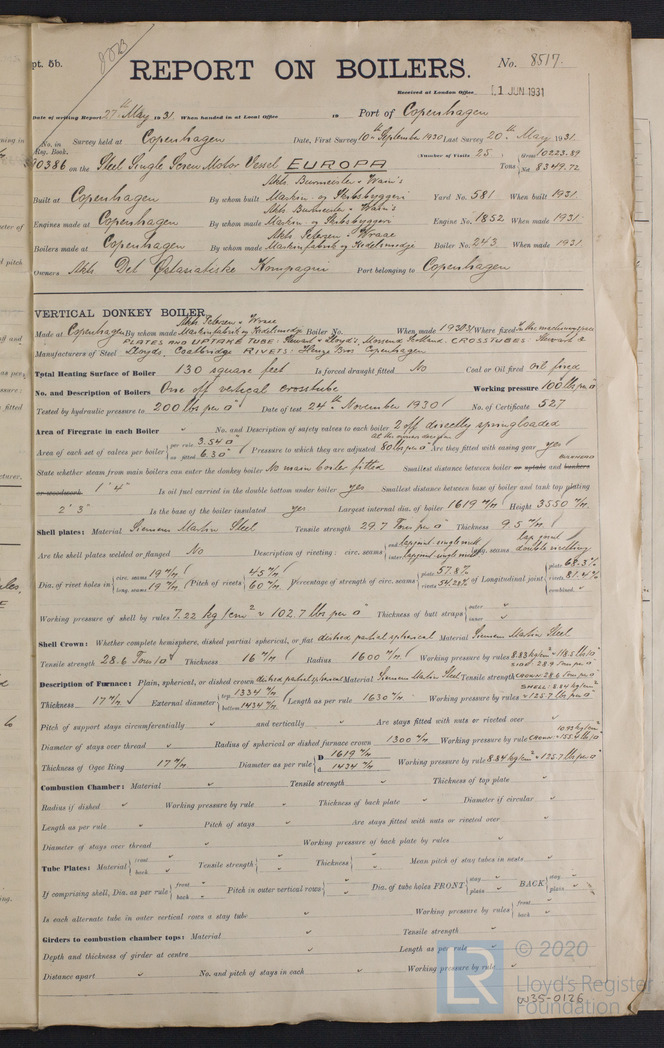 pt. 5b.
REPORT ON BOILERS.
No. 8517.
Received at London Office 11 JUN 1931
Date of writing Report 27th May 1931 When handed in at Local Office 19 Port of Copenhagen
No. in Reg. Book. Survey held at Copenhagen Date, First Survey 10th September 1930 Last Survey 20th May 1931
90386 on the Steel Single Screw Motor Vessel EUROPA (Number of Visits 25) Tons Gross 10223.89 Net 8349.72
Built at Copenhagen By whom built Akts. Burmeister & Wain's Maskin og Skibsbyggeri Yard No. 581 When built 1931
Engines made at Copenhagen By whom made Akts. Burmeister & Wain's Maskin og Skibsbyggeri Engine No. 1852 When made 1931
Boilers made at Copenhagen By whom made Akts Petersen & Wraae Maskinfabrik og Kedelsmedje Boiler No. 243 When made 1931
Owners Akts Det Østasiatiske Kompagni Port belonging to Copenhagen
VERTICAL DONKEY BOILER
Made at Copenhagen By whom made Akts Petersen & Wraae Maskinfabrik og Kedelsmedje Boiler No. When made 1930/31 Where fixed In the machinery space
PLATES AND UPTAKE TUBE: Stewart & Lloyd's, Mossend Scotland. CROSSTUBES: Stewart &
Manufacturers of Steel Lloyds, Coatbridge RIVETS: Heinze Bros Copenhagen
Total Heating Surface of Boiler 130 square feet Is forced draught fitted No Coal or Oil fired oil fired
No. and Description of Boilers One off vertical crosstube Working pressure 100 lbs per □"
Tested by hydraulic pressure to 200 lbs per □" Date of test 24th November 1930 No. of Certificate 527
Area of Firegrate in each Boiler " No. and Description of safety valves to each boiler 2 off directly springloaded
Area of each set of valves per boiler per rule 3.54 □" as fitted 6.30 □" Pressure to which they are adjusted 80 lbs per □" Are they fitted with easing gear yes
State whether steam from main boilers can enter the donkey boiler No main boiler fitted Smallest distance between boiler or uptake and bunkers
or woodwork 1' 4" Is oil fuel carried in the double bottom under boiler yes Smallest distance between base of boiler and tank top plating
2' 3" Is the base of the boiler insulated yes Largest internal dia. of boiler 1619 m/m Height 3550 m/m
Shell plates: Material Siemens Martin Steel Tensile strength 29.7 Tons per □" Thickness 9.5 m/m
Are the shell plates welded or flanged No Description of riveting: circ. seams end lap joint single riv. inter. lap joint single riv. long. seams lap joint double riveting
Dia. of rivet holes in circ. seams 19 m/m long. seams 19 m/m Pitch of rivets 45 m/m 60 m/m Percentage of strength of circ. seams plate 57.8% rivets 54.28% of Longitudinal joint plate 68.3% rivets 81.4% combined "
Working pressure of shell by rules 7.22 kg/cm² ~ 102.7 lbs per □" Thickness of butt straps outer " inner "
Shell Crown: Whether complete hemisphere, dished partial spherical, or flat dished partial spherical Material Siemens Martin Steel
Tensile strength 28.6 Tons/□" Thickness 16 m/m Radius 1600 m/m Working pressure by rules 8.33 kg/cm² ~ 118.5 lbs/□"
Description of Furnace: Plain, spherical, or dished crown dished partial spherical Material Siemens Martin Steel Tensile strength SIDE: 28.9 Tons per □" CROWN: 28.6 Tons per □"
Thickness 17 m/m External diameter top 1334 m/m bottom 1434 m/m Length as per rule 1630 m/m Working pressure by rules SHELL: 8.84 kg/cm² ~ 125.7 lbs per □"
Pitch of support stays circumferentially " and vertically " Are stays fitted with nuts or riveted over "
Diameter of stays over thread " Radius of spherical or dished furnace crown 1300 m/m Working pressure by rule CROWN: 10.93 kg/cm² ~ 155.4 lbs/□"
Thickness of Ogee Ring 17 m/m Diameter as per rule D 1619 m/m d 1434 m/m Working pressure by rule 8.84 kg/cm² ~ 125.7 lbs per □"
Combustion Chamber: Material " Tensile strength " Thickness of top plate "
Radius if dished " Working pressure by rule " Thickness of back plate " Diameter if circular "
Length as per rule " Pitch of stays " Are stays fitted with nuts or riveted over "
Diameter of stays over thread " Working pressure of back plate by rules "
Tube Plates: Material front " back " Tensile strength " Thickness " Mean pitch of stay tubes in nests "
If comprising shell, Dia. as per rule front " back " Pitch in outer vertical rows " Dia. of tube holes FRONT stay " plain " BACK stay " plain "
Is each alternate tube in outer vertical rows a stay tube " Working pressure by rules front " back "
Girders to combustion chamber tops: Material " Tensile strength "
Depth and thickness of girder at centre " Length as per rule "
Distance apart " No. and pitch of stays in each " Working pressure by rule "
© 2020
LR
Lloyd's Register
Foundation
W35-0126